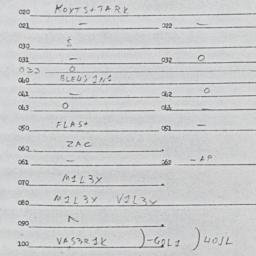 020 KOYTS+TARK
021 — 022 —
030 S
031 — 032 O
033 O
040 BLEUSINI
041 — 042 O
043 O 044 —
050 FLAS+ 051 —
060 ZAC
061 — 062 -AP
070 MIL3X
080 MIL3X VIL3X
090
100 VAS3R1K )-GOL1 ) 40JL